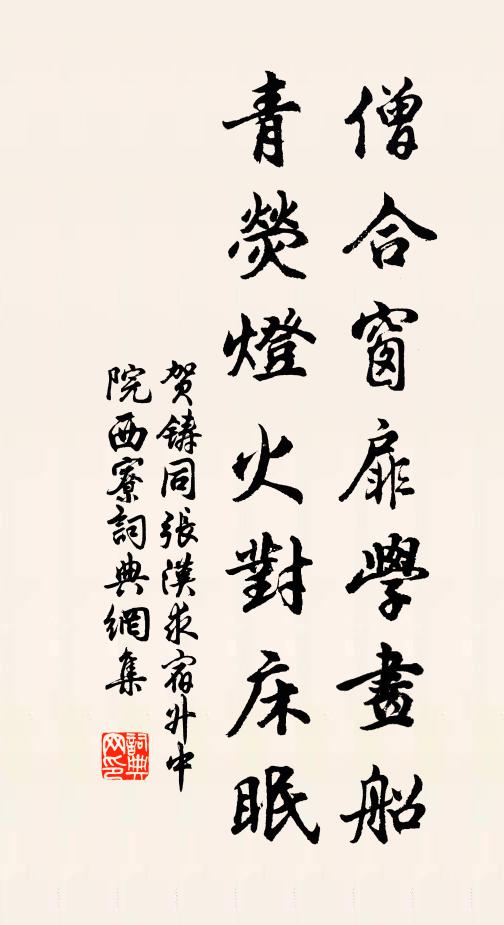 僧合窗扉學畫船
青熒燈火對床眠
賀鑄同張漢求宿升中
院西寮詞典網集
詞典
网印